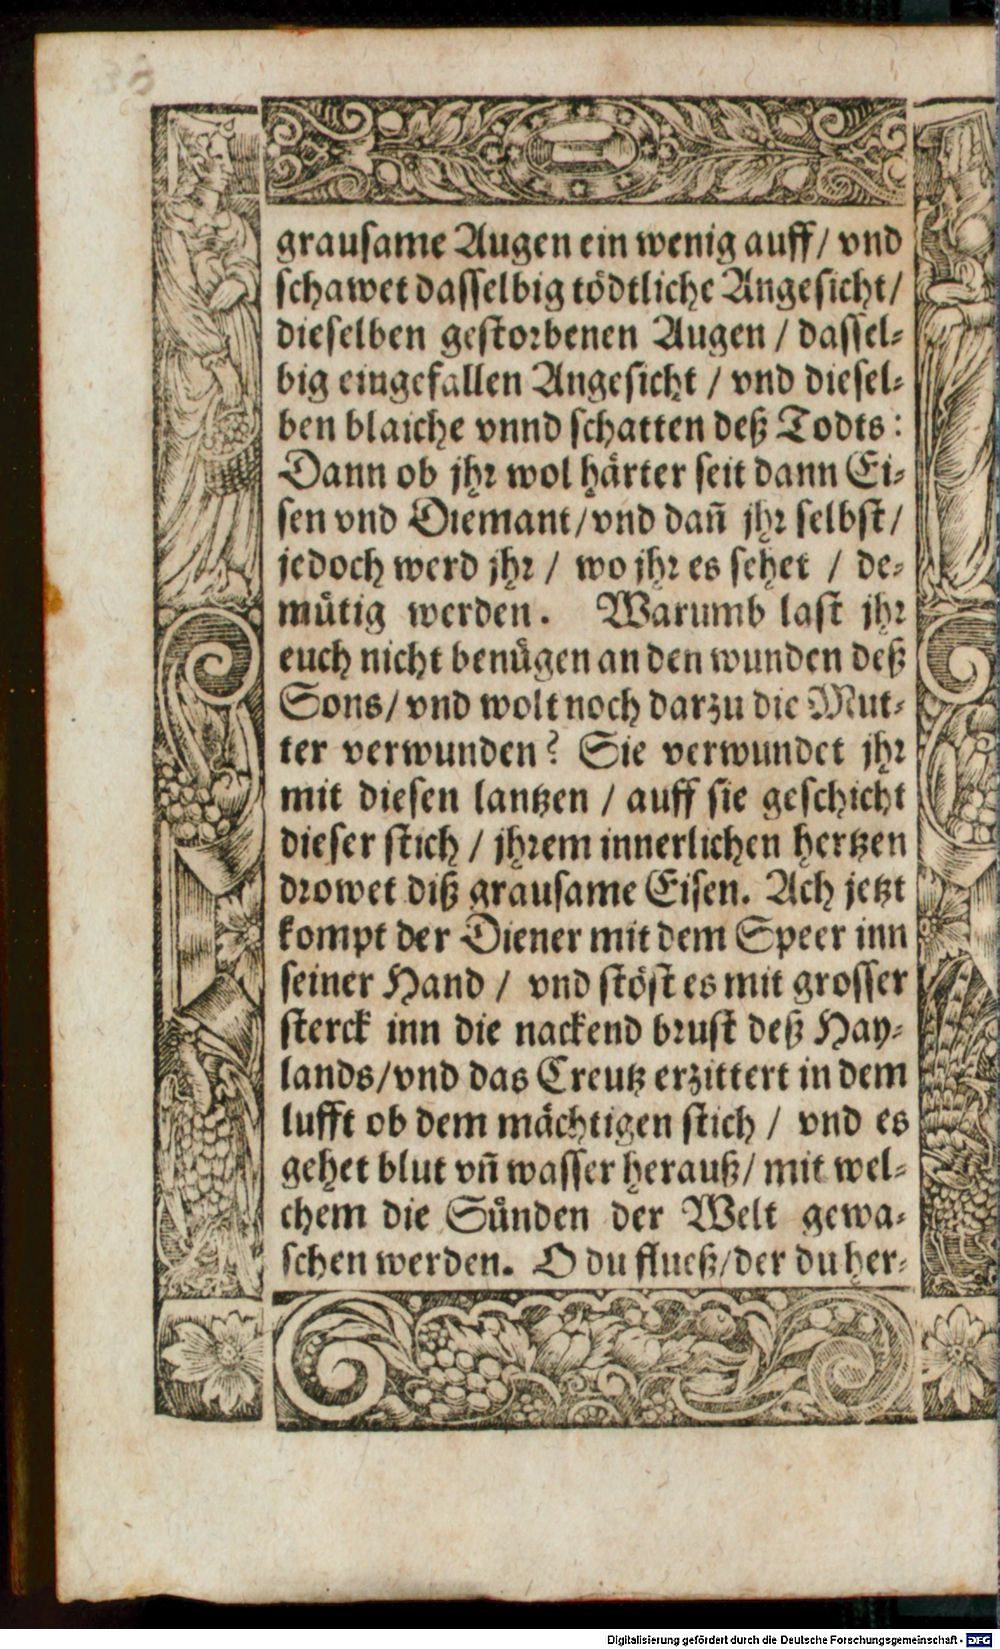 grausame Augen ein wenig auff/ vnd
schawet dasselbig tödtliche Angesicht/
dieselben gestorbenen Augen / dassel-
big eingefallen Angesicht / vnd diesel-
ben blaiche vnnd schatten deß Todts:
Dann ob jhr wol härter seit dann Ei-
sen vnd Diemant/vnd dañ jhr selbst/
jedoch werd jhr / wo jhr es sehet / de-
mütig werden. Warumb last jhr
euch nicht benügen an den wunden deß
Sons/ vnd wolt noch darzu die Mut-
ter verwunden? Sie verwundet jhr
mit diesen lantzen / auff sie geschicht
dieser stich / jhrem innerlichen hertzen
drowet diß grausame Eisen. Ach jetzt
kompt der Diener mit dem Speer inn
seiner Hand / vnd stöst es mit grosser
sterck inn die nackend brust deß Hay-
lands/vnd das Creutz erzittert in dem
lufft ob dem mächtigen stich / vnd es
gehet blut vñ wasser herauß/ mit wel-
chem die Sünden der Welt gewa-
schen werden. O du flueß/der du her-
Digitalisierung gefördert durch die Deutsche Forschungsgemeinschaft - DFG